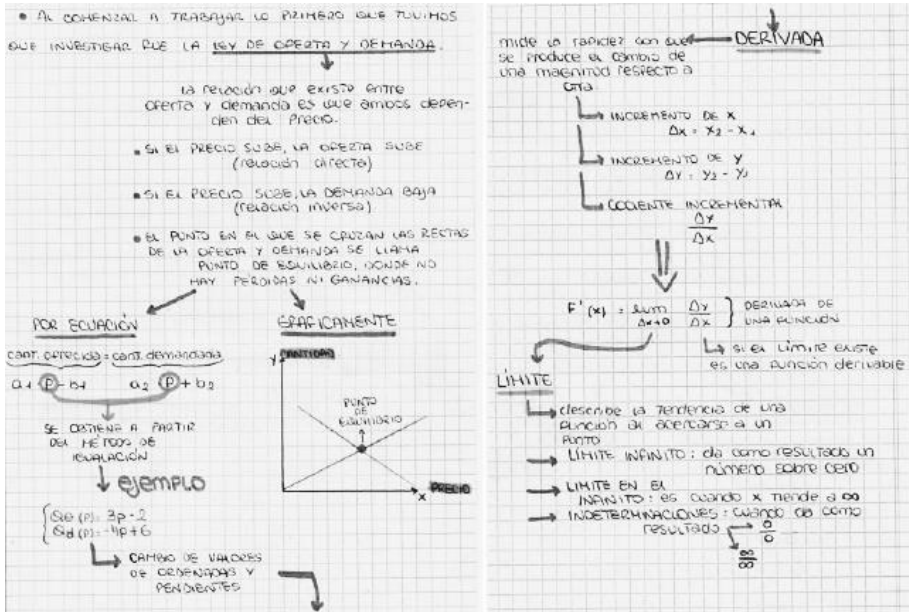 • AL COMENZAR A TRABAJAR LO PRIMERO QUE TUVIMOS
QUE INVESTIGAR FUE LA LEY DE OFERTA Y DEMANDA.
La relación que existe entre
oferta y demanda es que ambos depen-
den del precio.
• SI EL PRECIO SUBE, LA OFERTA SUBE
(relación directa)
• SI EL PRECIO SUBE, LA DEMANDA BAJA
(relación inversa)
• EL PUNTO EN EL QUE SE CRUZAN LAS RECTAS
DE LA OFERTA Y DEMANDA SE LLAMA
PUNTO DE EQUILIBRIO, DONDE NO
HAY PERDIDAS NI GANANCIAS.
POR ECUACIÓN
cant. ofrecida = cant. demandada
a1 P - b1 a2 P + b2
SE OBTIENE A PARTIR
DEL METODO DE
IGUALACIÓN
ejemplo
Qo (p) = 3p - 2
Qd (p) = -4p + 6
CAMBIO DE VALORES
DE ORDENADAS Y
PENDIENTES
GRAFICAMENTE
Y CANTIDAD
PUNTO
DE
EQUILIBRIO
PRECIO
X
DERIVADA
mide la rapidez con que
se produce el cambio de
una magnitud respecto a
otra
INCREMENTO DE X
Δx = x2 - x1
INCREMENTO DE Y
Δy = y2 - y1
COCIENTE INCREMENTAL
Δy
Δx
F'(x) = lim Δy } DERIVADA DE
Δx→0 Δx UNA FUNCIÓN
si el límite existe
es una función derivable
LÍMITE
describe la tendencia de una
función al acercarse a un
punto
LÍMITE INFINITO: da como resultado un
número sobre cero
LIMITE EN EL
INFINITO: es cuando x tiende a ∞
INDETERMINACIONES: cuando da como
resultado 0
0
∞
∞